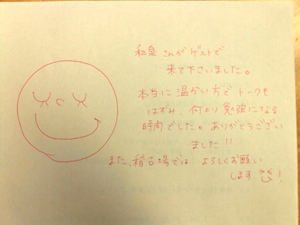 さんがゲストで
来て下さいました。
本当に温かい方でトークも
はずみ、何より勉強になる
時間でした。ありがとうござい
ました!!
また、稽古場では よろしくお願い
します!